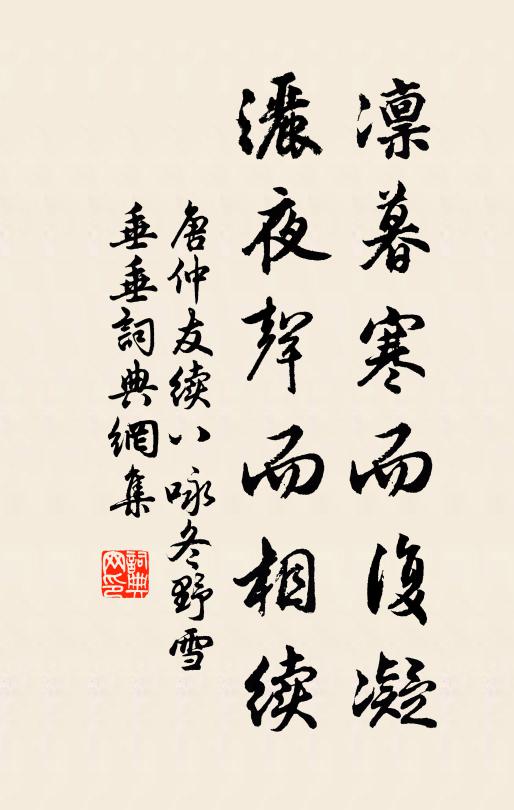 凛暮寒而復凝
灑夜聲而相續
唐仲友續八咏冬野雪
垂垂詞典網集
詞典網印